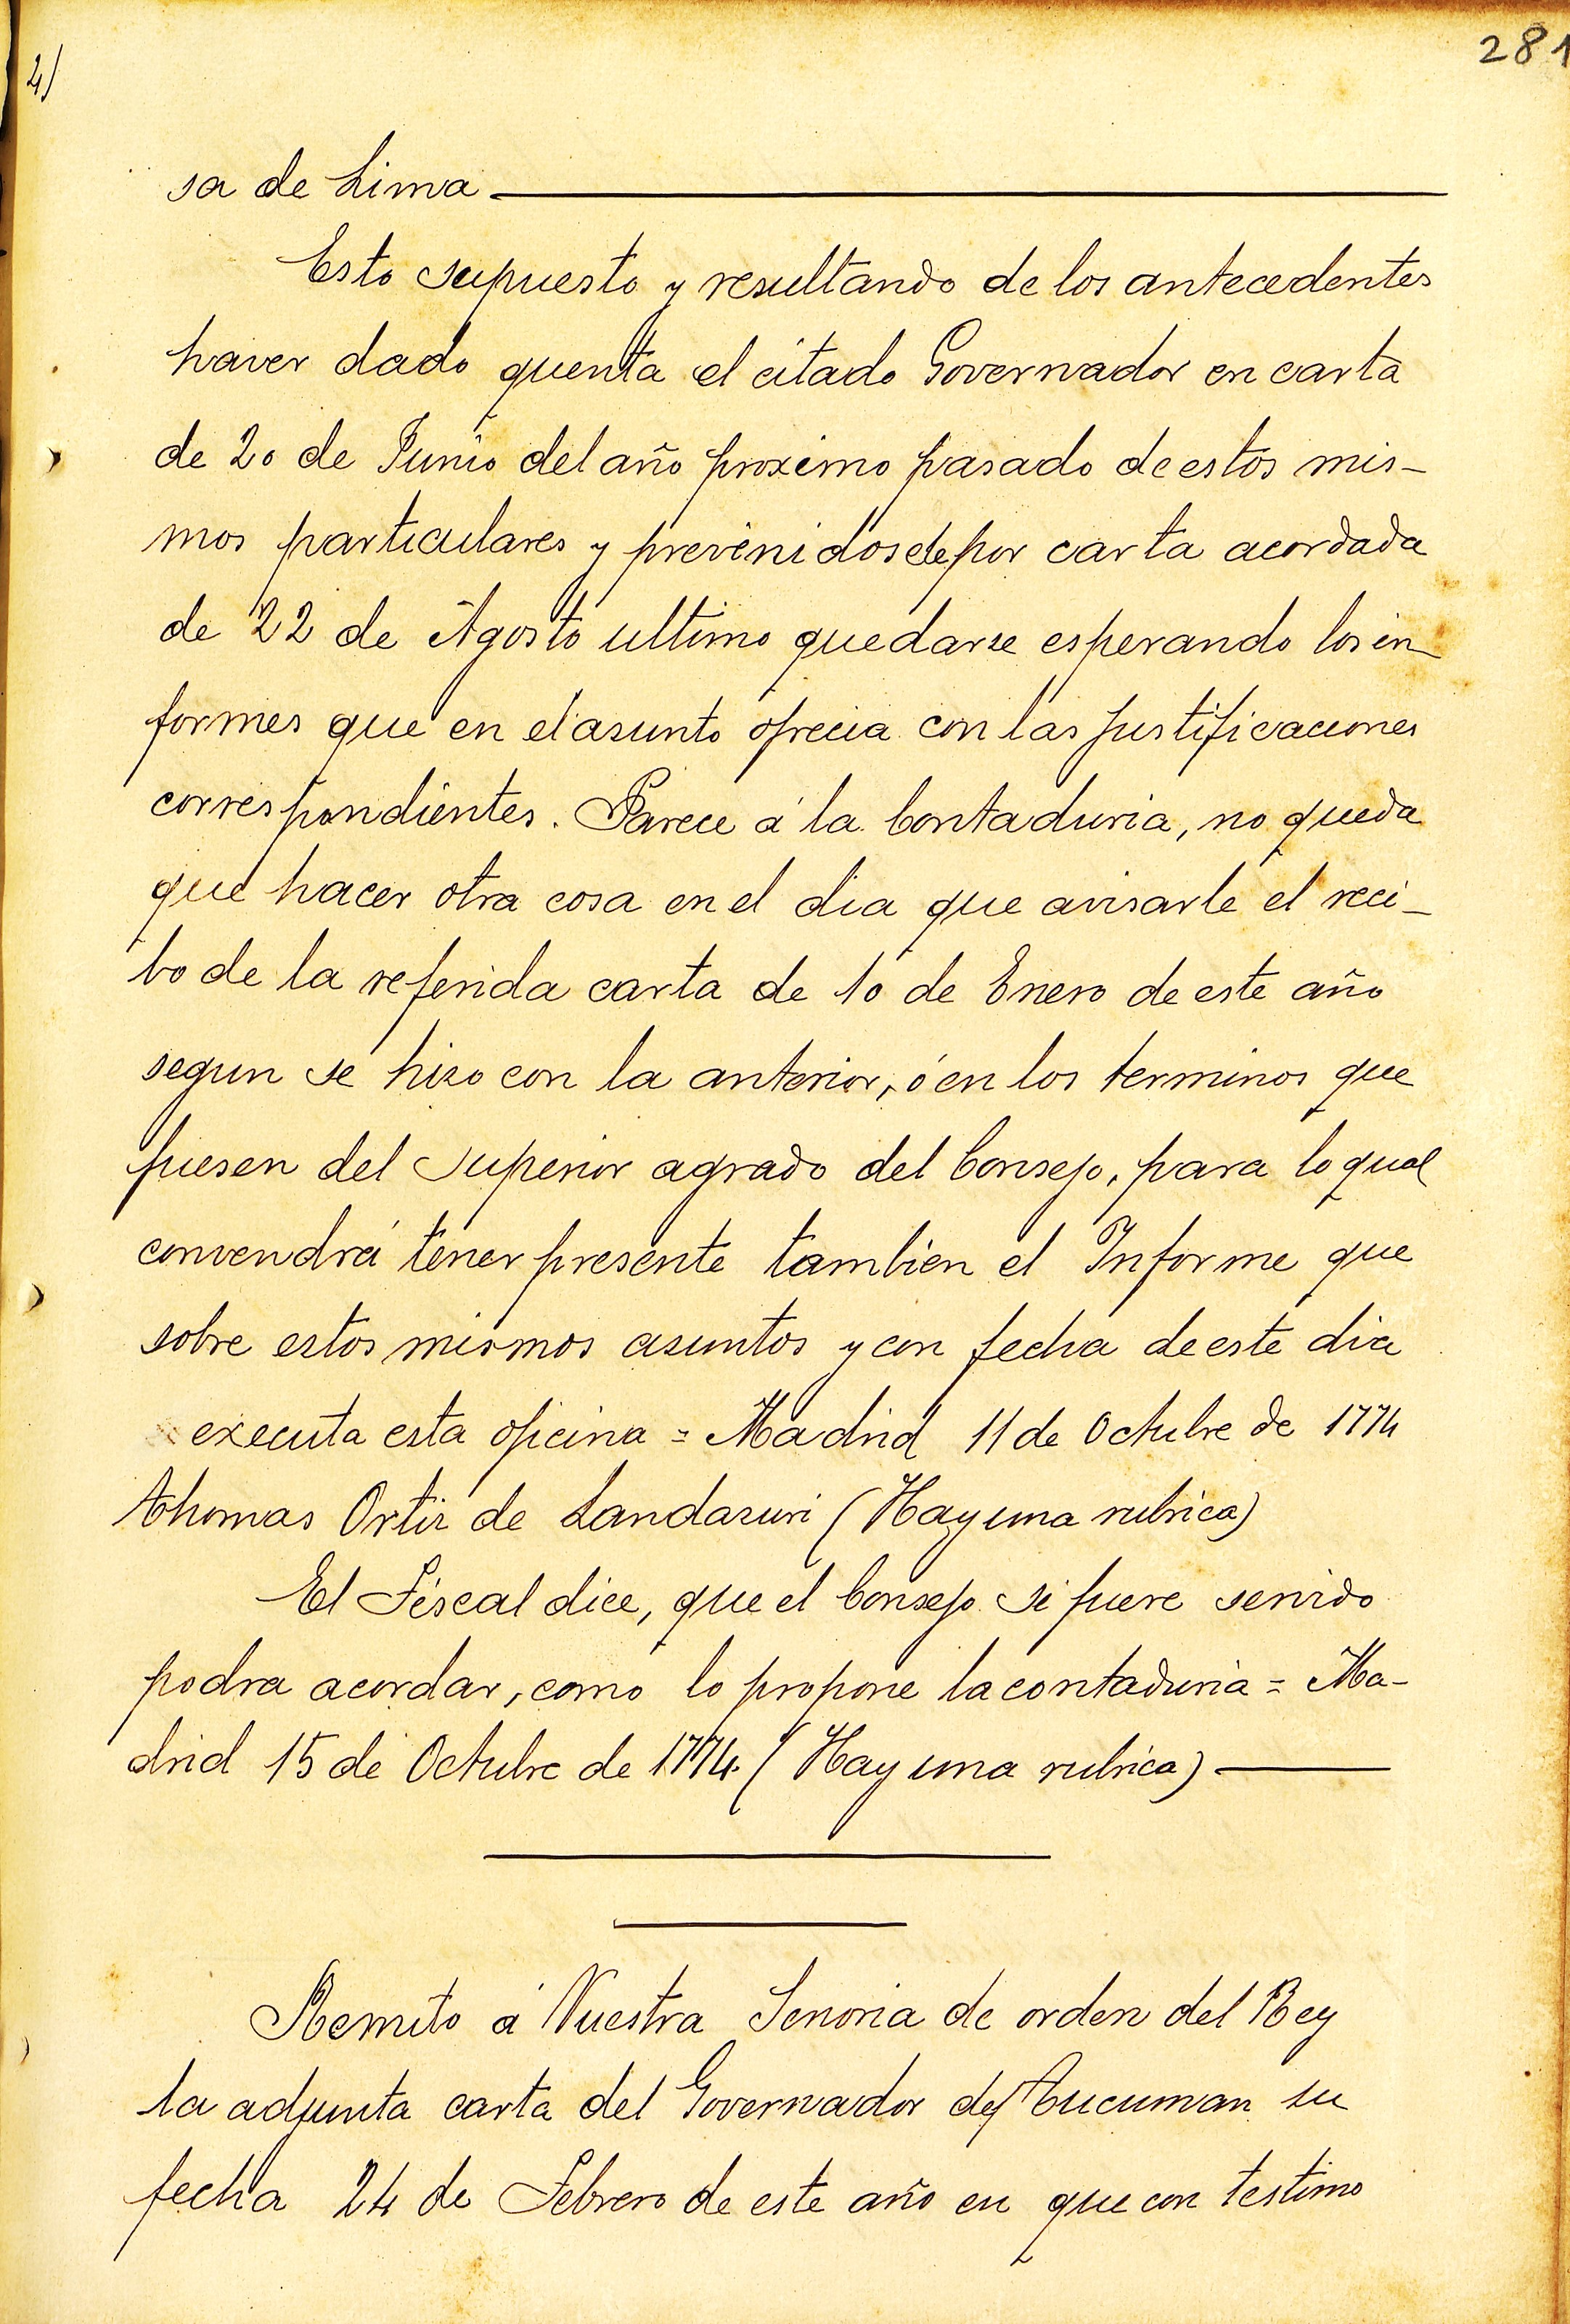 4)
281
sa de Lima
Esto supuesto y resultando de los antecedentes
haver dado quenta el citado Governador en carta
de 20 de Junio del año proximo pasado de estos mis-
mos particulares y prevenidosele por carta acordada
de 22 de Agosto ultimo quedarse esperando los in-
formes que en el asunto ofrecia con las justificaciones
correspondientes. Parece á la Contaduria, no queda
que hacer otra cosa en el dia que avisarle el reci-
bo de la referida carta de 10 de Enero de este año
segun se hizo con la anterior, ó en los terminos que
fuesen del superior agrado del Consejo, para lo qual
convendrá tener presente tambien el Informe que
sobre estos mismos asuntos y con fecha de este dia
executa esta oficina = Madrid 11 de Octubre de 1774
Thomas Ortiz de Landazuri (Hay una rubrica)
El Fiscal dice, que el Consejo si fuere servido
podra acordar, como lo propone la contaduria = Ma-
drid 15 de Octubre de 1774. (Hay una rubrica)
Remito á Vuestra Senoria de orden del Rey
la adjunta carta del Governador del Tucuman su
fecha 24 de Febrero de este año en que con testimo